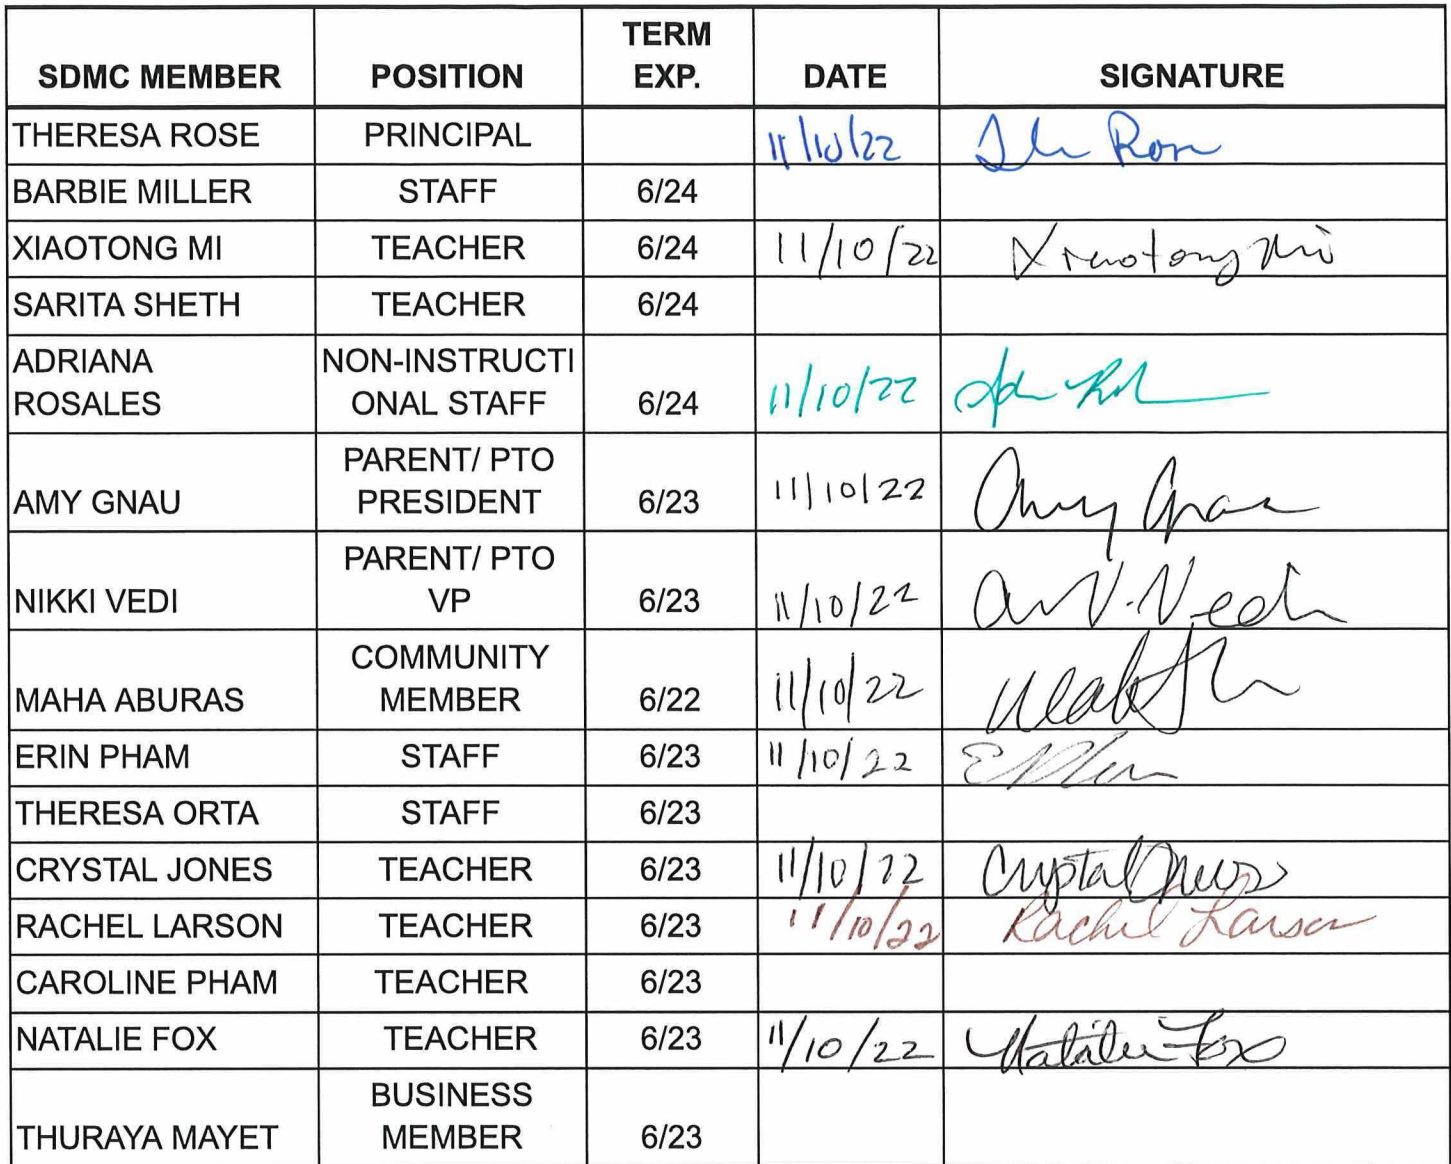 TERM
SDMC MEMBER POSITION EXP. DATE SIGNATURE
THERESA ROSE PRINCIPAL 11/10/22 Rose
BARBIE MILLER STAFF 6/24
XIAOTONG MI TEACHER 6/24 11/10/22 Xiaotong Mi
SARITA SHETH TEACHER 6/24
ADRIANA NON-INSTRUCTI
ROSALES ONAL STAFF 6/24 11/10/22
PARENT/ PTO
AMY GNAU PRESIDENT 6/23 11/10/22 Amy Gnau
PARENT/ PTO
NIKKI VEDI VP 6/23 11/10/22 V. Vedi
COMMUNITY
MAHA ABURAS MEMBER 6/22 11/10/22
ERIN PHAM STAFF 6/23 11/10/22
THERESA ORTA STAFF 6/23
CRYSTAL JONES TEACHER 6/23 11/10/22 Crystal Jones
RACHEL LARSON TEACHER 6/23 11/10/22 Rachel Larson
CAROLINE PHAM TEACHER 6/23
NATALIE FOX TEACHER 6/23 11/10/22 Natalie Fox
BUSINESS
THURAYA MAYET MEMBER 6/23